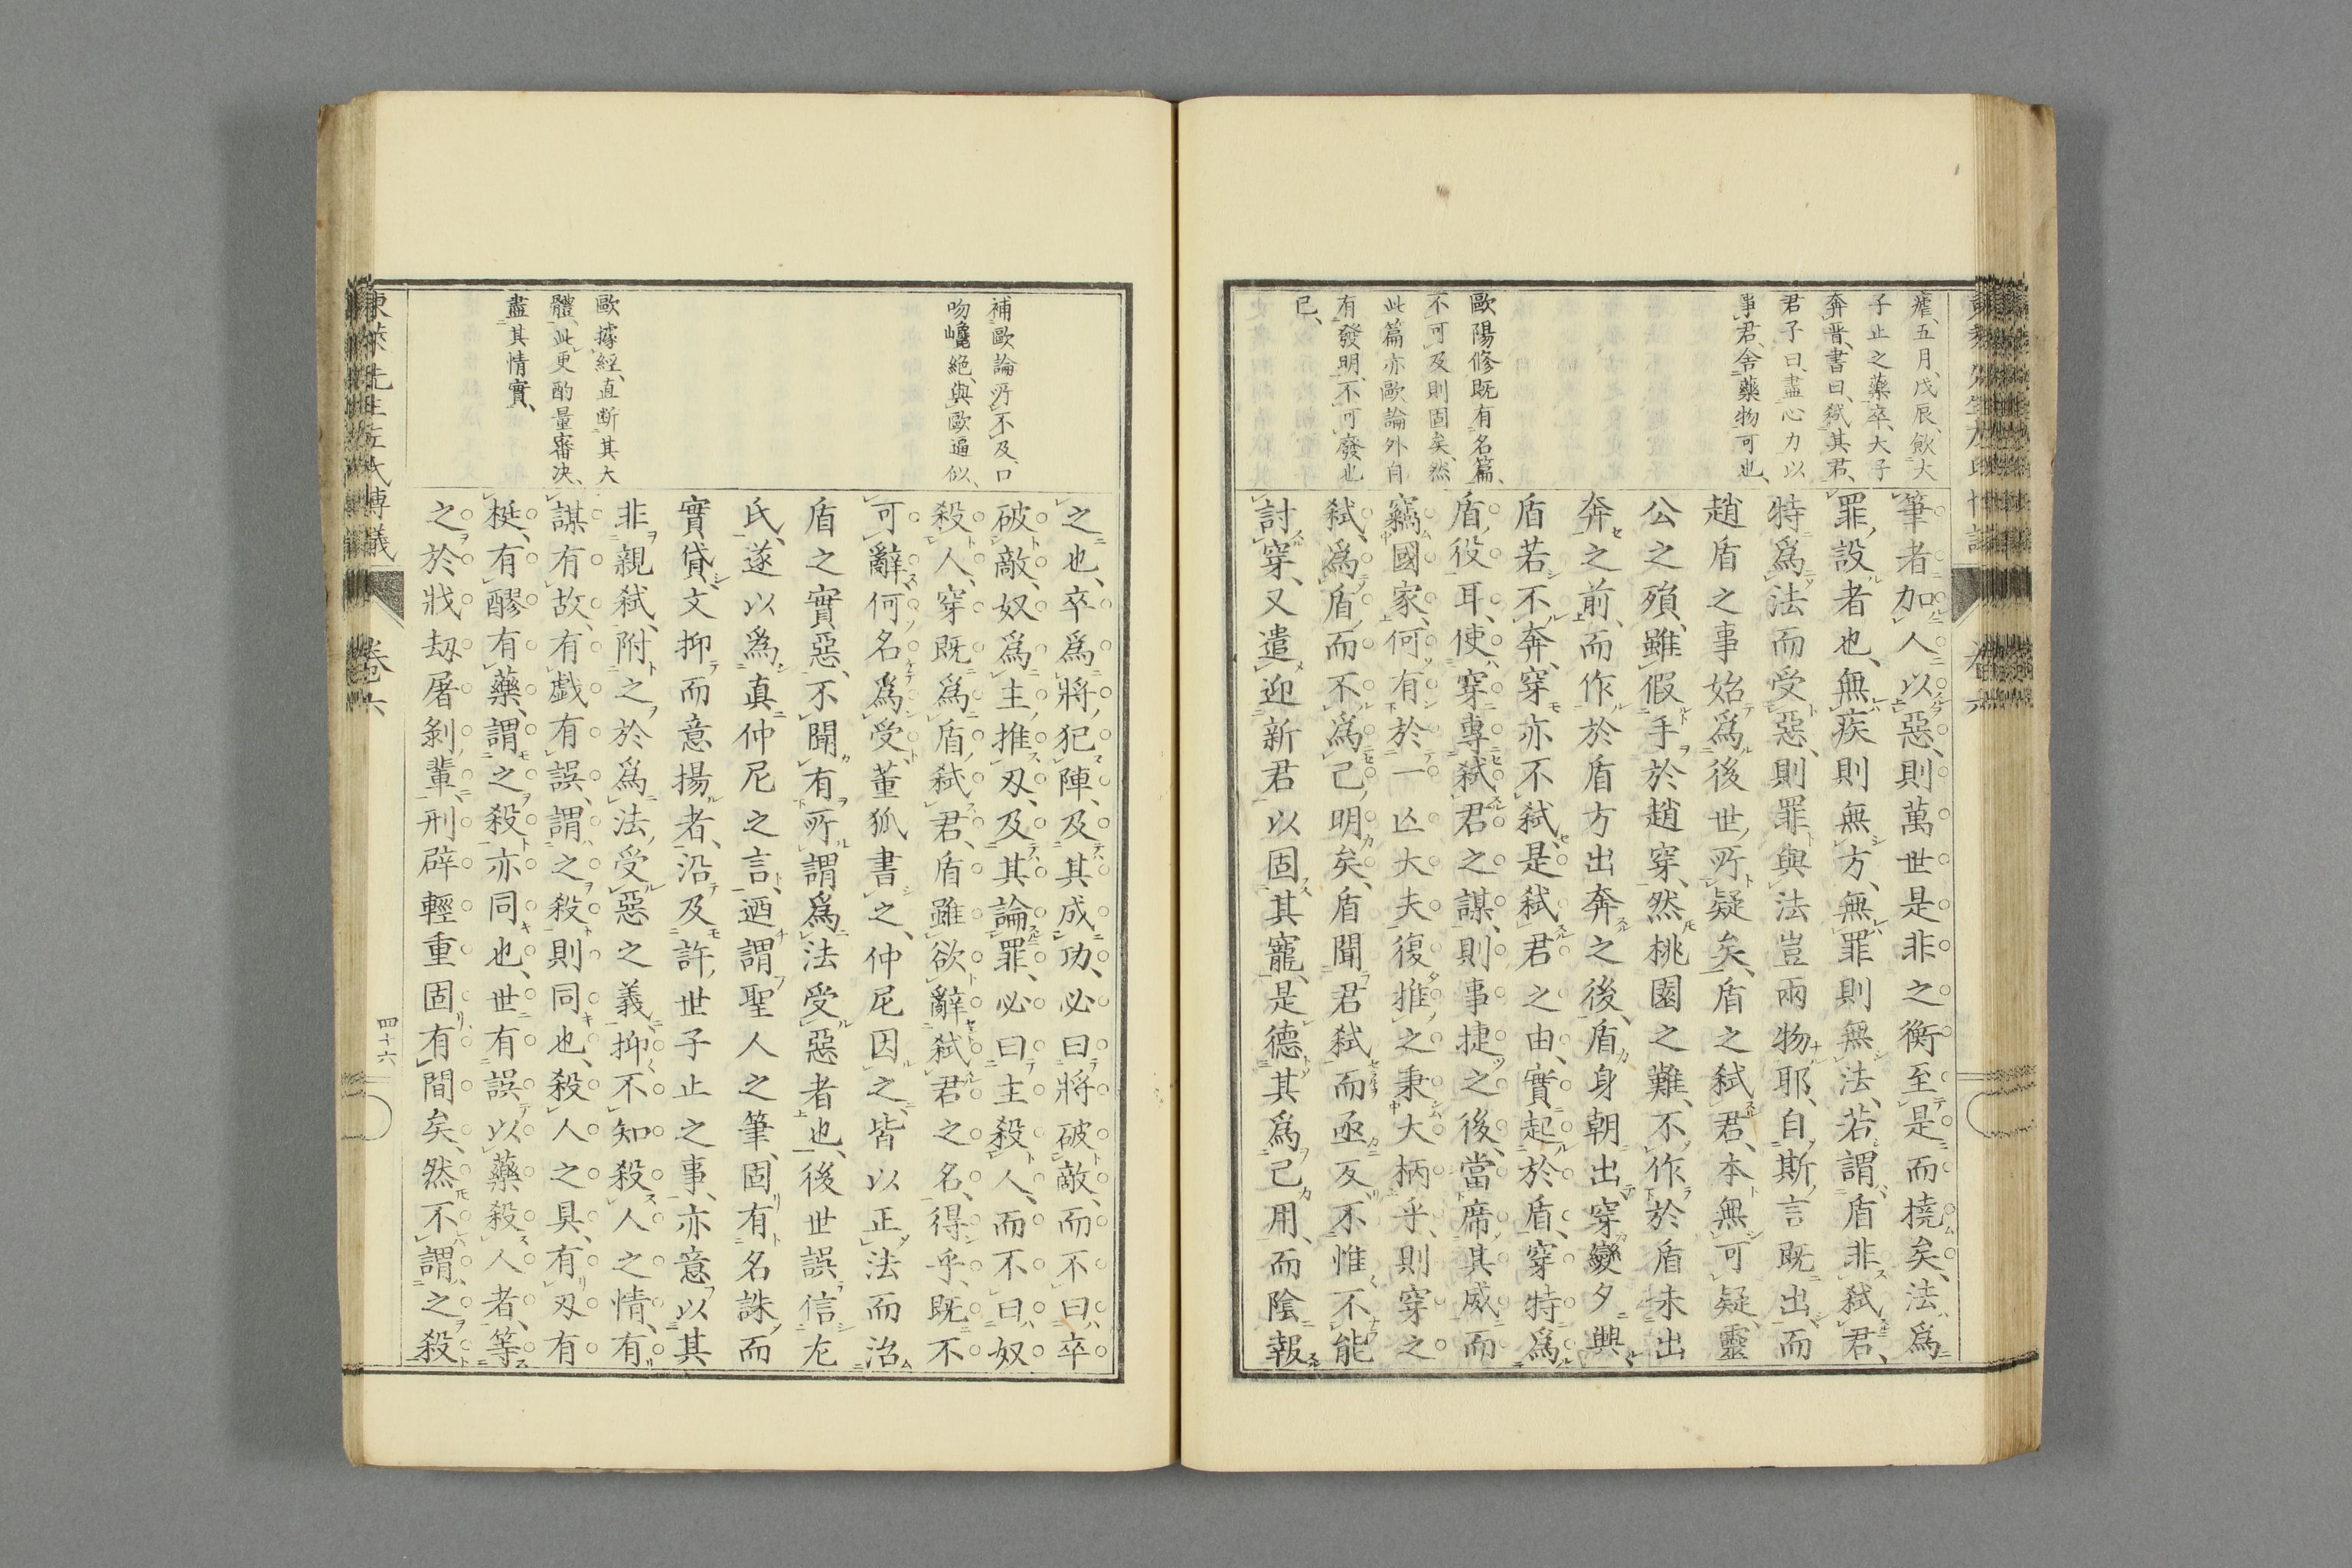 瘧、五月、戊辰、飲大
子止之藥、卒、大子
奔晉、書曰、弑其君、
君子曰、盡心力以
事君、舍藥物可也、
歐陽修既有名篇、
不可及則固矣、然
此篇亦歐論外自
有發明、不可廢也
已、
筆者加人以惡、則萬世是非之衡至是而撓矣、法爲
罪設者也、無疾則無方、無罪則無法、若謂盾非弑君、
特爲法而受惡、則罪與法豈兩物耶、自斯言既出而
趙盾之事始爲後世所疑矣、盾之弑君、本無可疑、靈
公之殞、雖假手於趙穿、然桃園之難、不作於盾未出
奔之前、而作於盾方出奔之後、盾身朝出、穿變夕興
盾若不奔、穿亦不弑、是弑君之由、實起於盾、穿特爲
盾役耳、使穿專弑君之謀、則事捷之後、當席其威而
竊國家、何有於一亾大夫、復推之秉大柄乎、則穿之
弑、爲盾而不爲己、明矣、盾聞君弑而亟反、不惟不能
討穿、又遣迎新君以固其寵、是德其爲己用、而陰報
補歐論所不及、口
吻巉絕、與歐逼似、
歐據經、直斷其大
體、此更酌量審决、
盡其情實、
之也、卒爲將犯陣、及其成功、必曰將破敵、而不曰卒
破敵、奴爲主推刄、及其論罪、必曰主殺人、而不曰奴
殺人、穿既爲盾弑君、盾雖欲辭弑君之名、得乎、既不
可辭、何名爲受、董狐書之、仲尼因之、皆以正法而治
盾之實惡、不聞有所謂爲法受惡者也、後世誤信左
氏、遂以爲真仲尼之言、迺謂聖人之筆、固有名誅而
實貸、文抑而意揚者、沿及許世子止之事、亦意以其
非親弑、附之於爲法受惡之義、抑不知殺人之情、有
謀有故、有戱有誤、謂之殺則同也、殺人之具、有刄有
梃、有醪有藥、謂之殺亦同也、世有誤以藥殺人者、等
之於戕刼屠剝輩、刑辟輕重固有間矣、然不謂之殺
東萊先生左氏博議
卷六
四十六